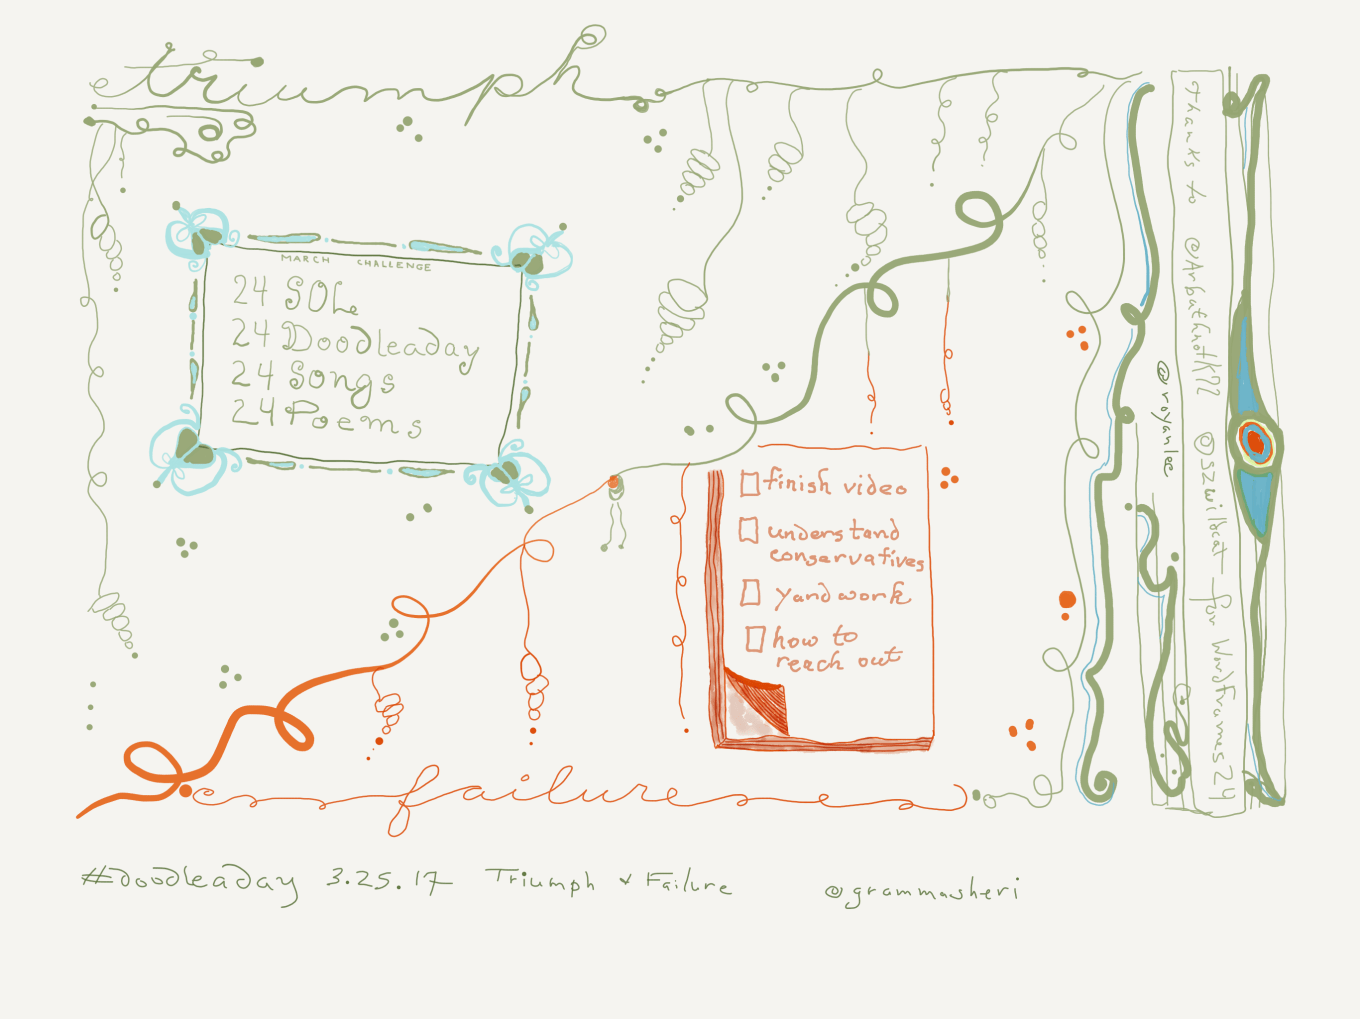 triumph
MARCH CHALLENGE
24 SOLs
24 Doodleaday
24 Songs
24 Poems
finish video
understand
conservatives
yardwork
how to
reach out
failure
Thanks to @Arbathnott22 @szwildcat for Wordframes24
@royanlee
#doodleaday 3.25.17 Triumph + Failure @grammasheri